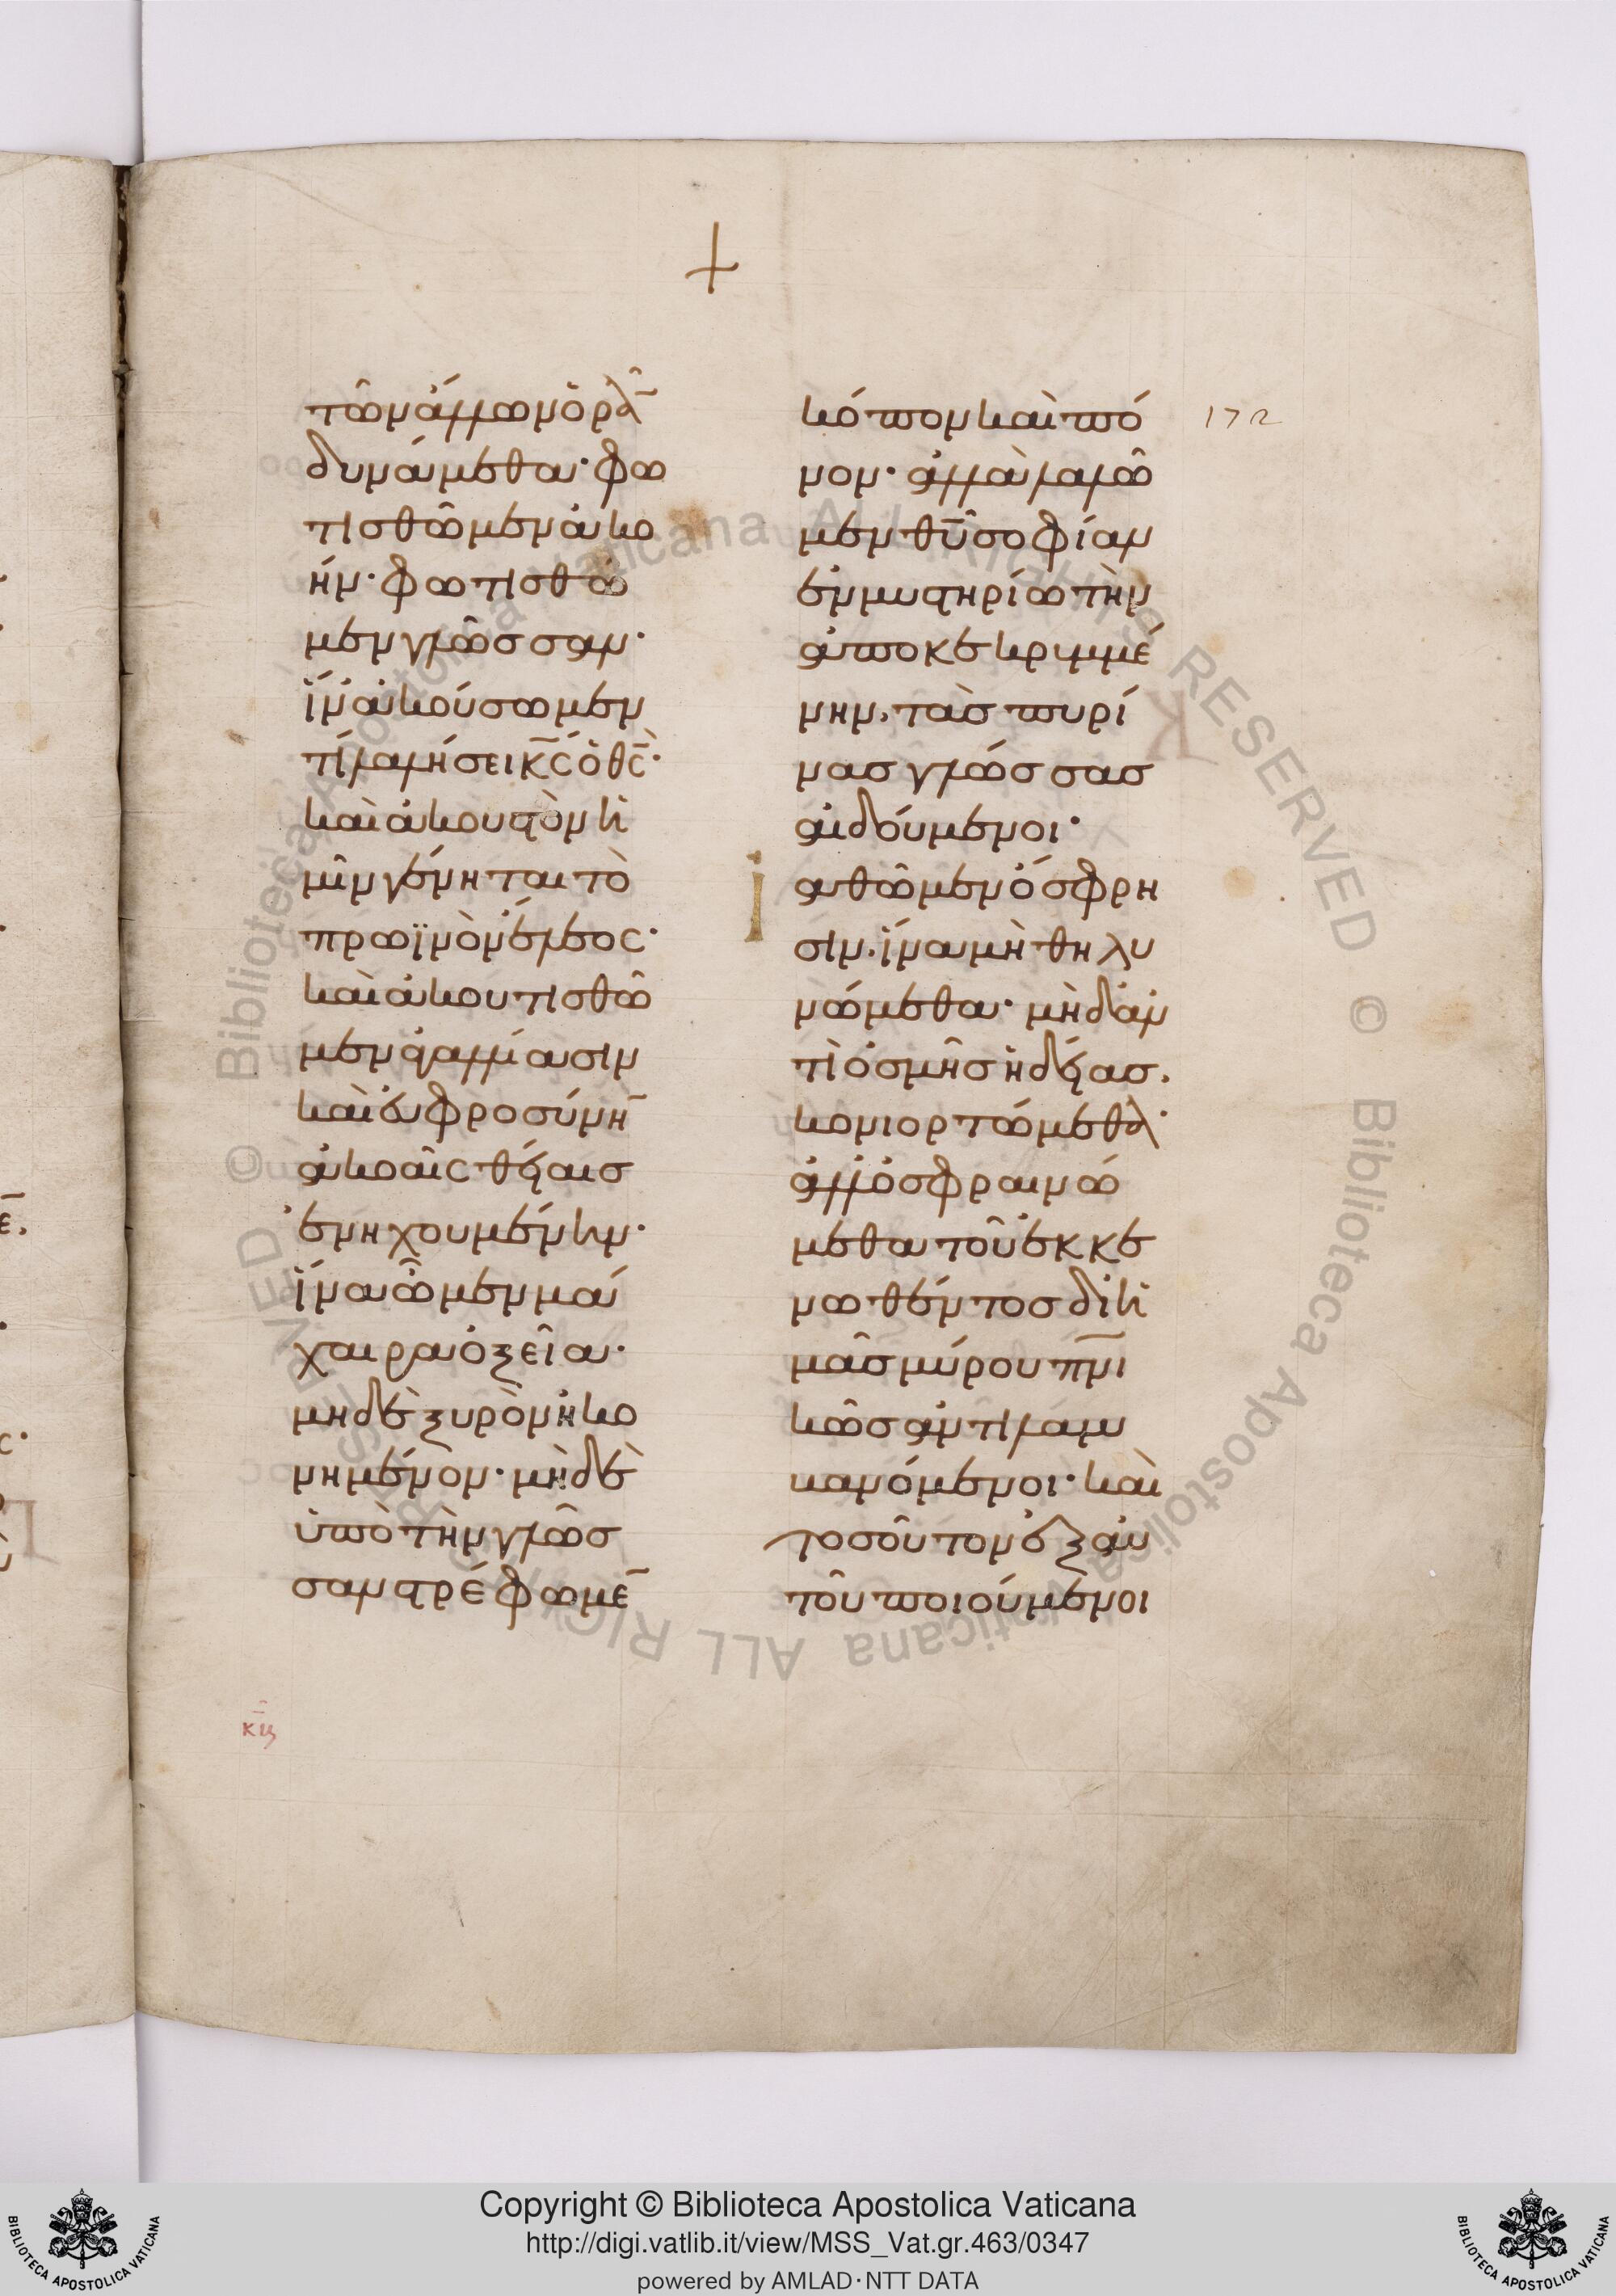 τῶν ἄλλων ὁρᾶ̅
δυνάμεθα· φω
τισθῶμεν ἀκο
ήν· φωτισθῶ
μεν γλῶσσαν·
ἵν' ἀκούσωμεν
τί λαλήσει κ̅ς̅ ὁ θ̅ς̅·
καὶ ἀκουστὸν ἡ
μῖν γένηται τὸ
πρωϊνὸν ἔλεος·
καὶ ἀκουτισθῶ
μεν ἀγαλλίασιν
καὶ εὐφροσύνη̅
ἀκοαῖς θείαις
ἐνηχουμένην·
ἵνα ὦμεν μά
χαιρα ὀξεῖα·
μηδὲ ξυρὸν ἠκο
νημένον· μηδὲ
ὑπὸ τὴν γλῶσ
σαν στρέφωμε̅
κόπον καὶ πό
νον· ἀλλὰ λαλῶ
μεν θ̅υ̅ σοφίαν
ἐν μυστηρίω τὴν
ἀποκεκρυμμέ
νην. τὰς πυρί
νας γλώσσας
αἰδούμενοι·
ἰαθῶμεν ὄσφρη
σιν. ἵνα μὴ θηλυ
νώμεθα· μηδ' ἀν
τὶ ὀσμῆς ἡδείας.
κονιορτώμεθα·
ἀλλ' ὀσφραινώ
μεθα τοῦ ἐκκε
νωθέντος δι' ἡ
μᾶς μύρου π̅ν̅ι
κῶς ἀντιλαμ
βανόμενοι· καὶ
τοσοῦτον ἐξ αὐ
τοῦ ποιούμενοι
172
κ̅β̅
Copyright © Biblioteca Apostolica Vaticana
http://digi.vatlib.it/view/MSS_Vat.gr.463/0347
powered by AMLAD·NTT DATA
BIBLIOTECA APOSTOLICA VATICANA
BIBLIOTECA APOSTOLICA VATICANA